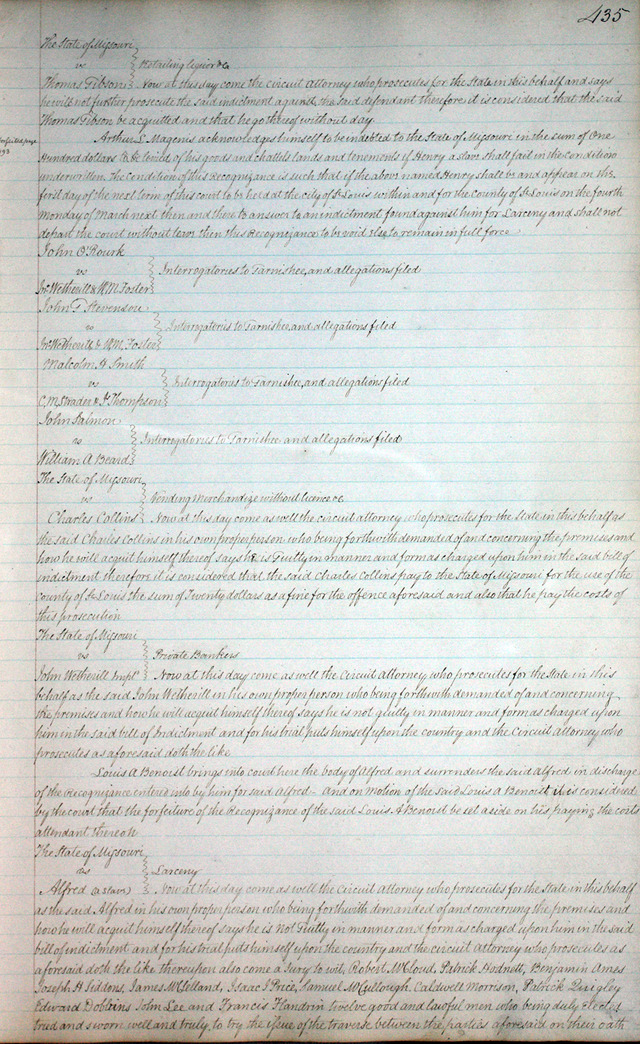 435
The State of Missouri
vs } Retailing liquor &c
Thomas Gibson } Now at this day come the circuit Attorney who prosecutes for the State in this behalf and says
he will not further prosecute the said indictment against the said defendant therefore it is considered that the said
Thomas Gibson be acquitted and that he go thereof without day
Arthur L Magenis acknowledges himself to be indebted to the State of Missouri in the sum of One
Hundred dollars to be levied of his goods and chattels lands and tenements if Henry a slave shall fail in the condition
underwritten. The Condition of this Recognizance is such that if the above named Henry shall be and appear on the
first day of the next term of this court to be held at the city of St Louis within and for the county of St Louis on the fourth
Monday of March next then and there to answer to an indictment found against him for Larceny and shall not
depart the court without leave then this Recognizance to be void else to remain in full force
John O'Rourk
vs } Interrogatories to Garnishee, and allegations filed
Jno Wetherill & W.M. Foster
John T Stevenson
vs } Interrogatories to Garnishee and allegations filed
Jno Wetherill & W.M. Foster
Malcolm H Smith
vs } Interrogatories to Garnishee, and allegations filed
C, M, Strader & J. Thompson
John Salmon
vs } Interrogatories to Garnishee and allegations filed
William A Beard
The State of Missouri
vs } Vending Merchandize without licence &c
Charles Collins } Now at this day come as well the circuit attorney who prosecutes for the State in this behalf as
the said Charles Collins in his own proper person who being forthwith demanded of and concerning the premises and
how he will acquit himself thereof says he is Guilty in manner and form as charged upon him in the said bill of
indictment therefore it is considered that the said Charles Collins pay to the State of Missouri for the use of the
county of St Louis the sum of Twenty dollars as a fine for the offence aforesaid and also that he pay the costs of
this prosecution
The State of Missouri
vs } Private Bankers
John Wetherill Impl'd } Now at this day come as well the Circuit Attorney who prosecutes for the State in this
behalf as the said John Wetherill in his own proper person who being forthwith demanded of and concerning
the premises and how he will acquit himself thereof says he is not guilty in manner and form as charged upon
him in the said bill of Indictment and for his trial puts himself upon the country and the Circuit Attorney who
prosecutes as aforesaid doth the like
Louis A Benoist brings into court here the body of Alfred and surrenders the said Alfred in discharge
of the Recognizance entered into by him for said Alfred - And on motion of the said Louis A Benoist it is considered
by the court that the forfeiture of the Recognizance of the said Louis A Benoist be set aside on his paying the costs
attendant thereon
The State of Missouri
vs } Larceny
Alfred (a slave) } Now at this day come as well the Circuit Attorney who prosecutes for the State in this behalf
as the said Alfred in his own proper person who being forthwith demanded of and concerning the premises and
how he will acquit himself thereof says he is Not Guilty in manner and form as charged upon him in the said
bill of indictment and for his trial puts himself upon the country and the circuit Attorney who prosecutes as
aforesaid doth the like thereupon also come a Jury to wit, Robert McCloud, Patrick Hodnett, Benjamin Ames
Joseph H Siddons, James McClelland, Isaac I Price, Samuel McCullough, Caldwell Morrison, Patrick Quigley
Edward Dobbins John Lee and Francis Flandrin twelve good and lawful men who being duly elected
tried and sworn well and truly, to try the issue of the traverse between the parties aforesaid on their oath